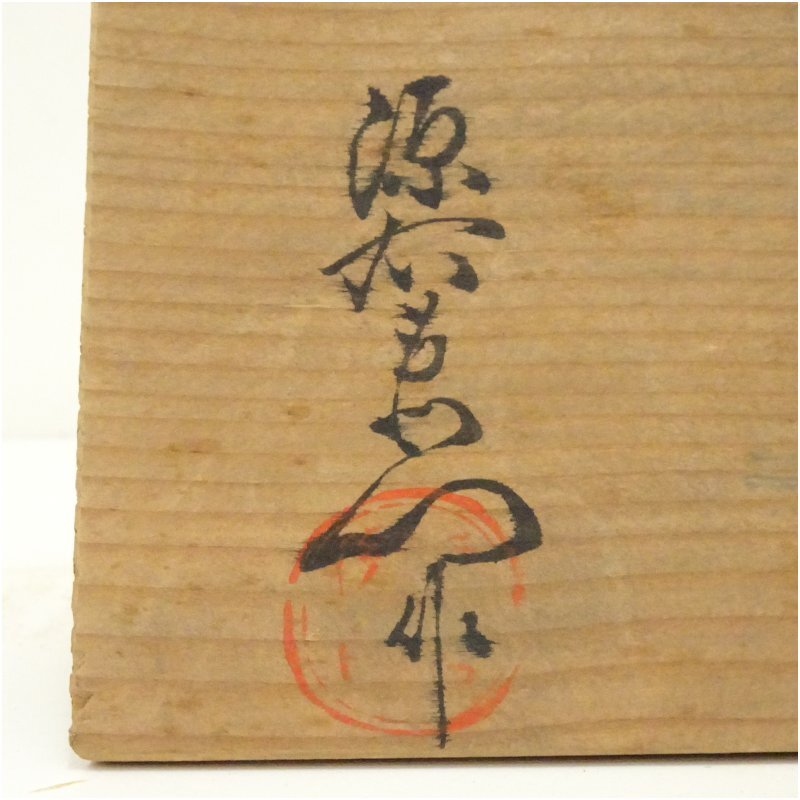 源右衛門作